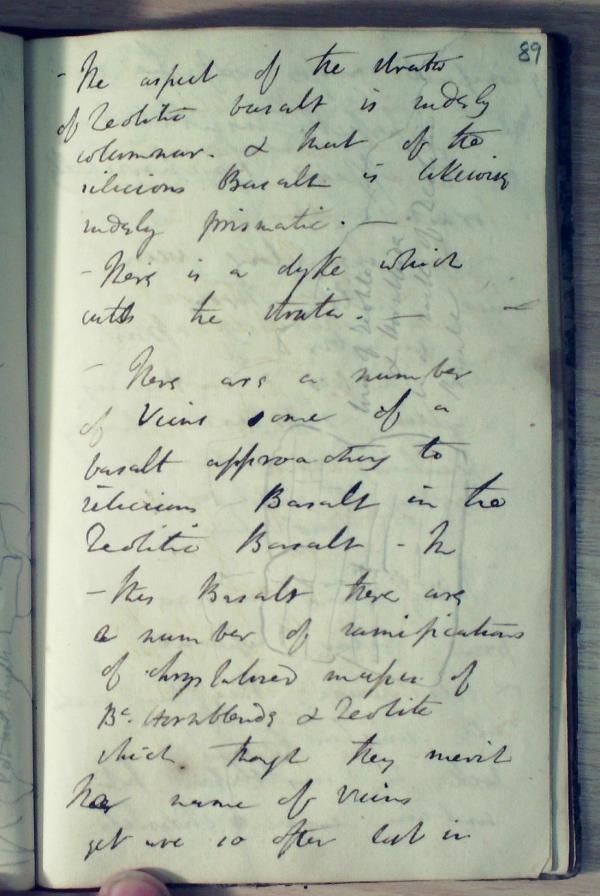 89
- The aspect of the strata
of Zeolitic basalt is rudely
columnar. & that of the
silicious Basalt is likewise
rudely prismatic. —
- There is a dyke which
cutts the strata. —
- There are a number
of Veins some of a
basalt approaching to
silicious Basalt in the
Zeolitic Basalt - In
- this Basalt there are
a number of ramifications
of chrystalized masses of
Bc. Hornblende & Zeolite
which though they merit
the name of Veins
yet are so often lost in